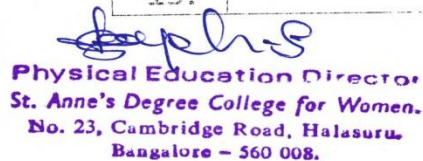 Physical Education Director
St. Anne's Degree College for Women.
No. 23, Cambridge Road, Halasuru,
Bangalore – 560 008.